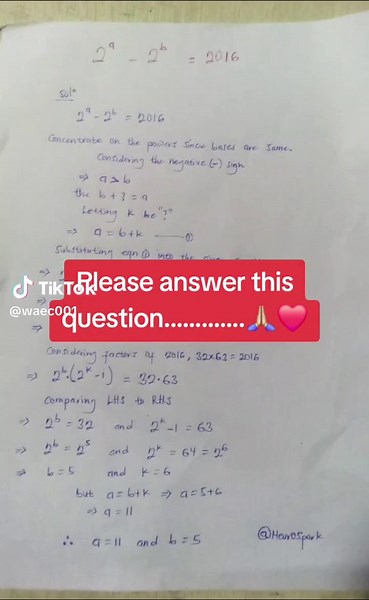 2^a - 2^b = 2016
Solⁿ
2^a - 2^b = 2016
Concentrate on the powers since bases are same.
Considering the negative (-) sign
⇒ a > b
the b + ? = a
Letting k be "?"
⇒ a = b+k —— ①
Substituting eqn ① into the
TikTok
@waec001
Please answer this
question.............🙏🏼💗
Considering factors of 2016, 32x63 = 2016
⇒ 2^b·(2^k - 1) = 32·63
Comparing LHS to RHS
⇒ 2^b = 32 and 2^k - 1 = 63
⇒ 2^b = 2^5 and 2^k = 64 = 2^6
⇒ b = 5 and k = 6
but a = b+k ⇒ a = 5+6
⇒ a = 11
∴ a = 11 and b = 5